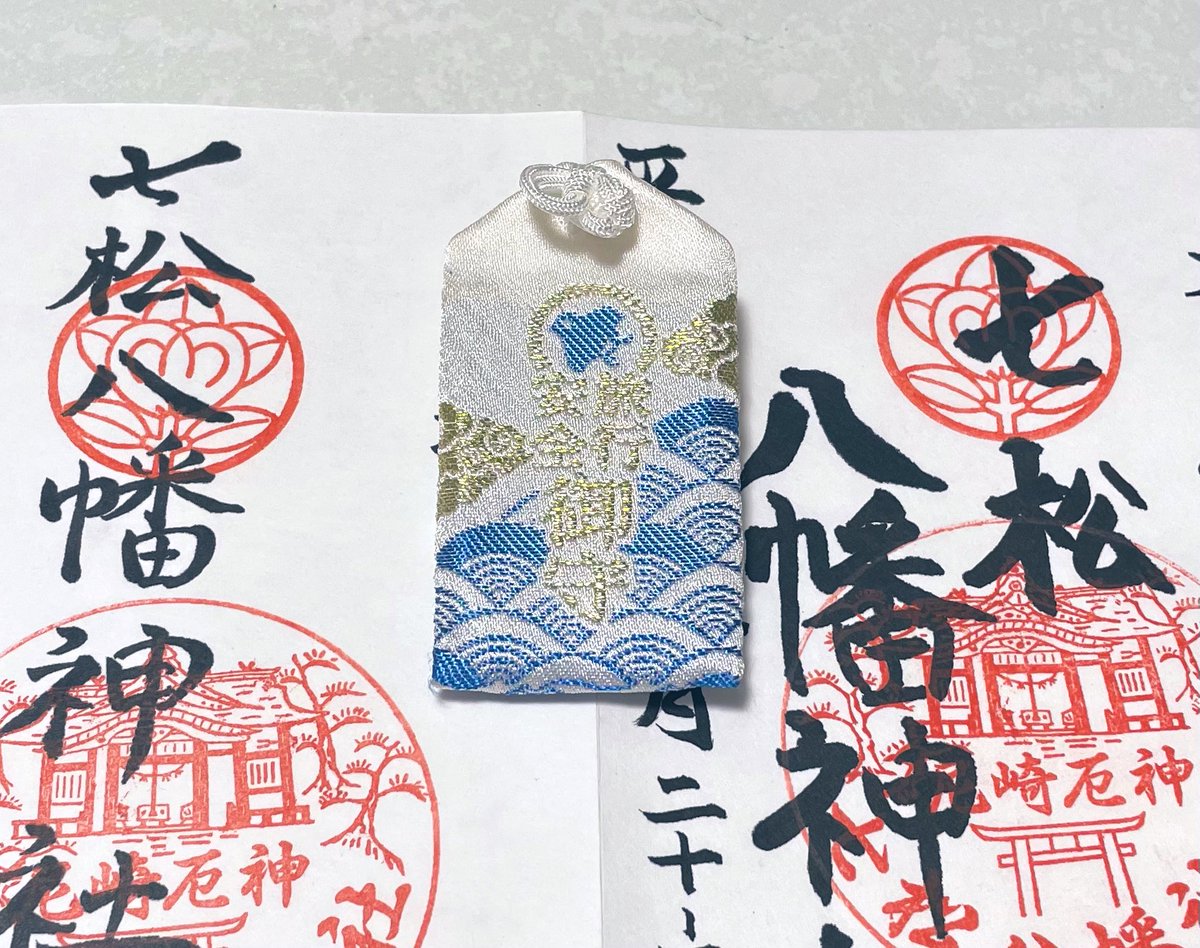 七松
八幡神
尼崎厄神
平
月二十
旅行
安全
御守
七松八幡神社
尼崎厄神